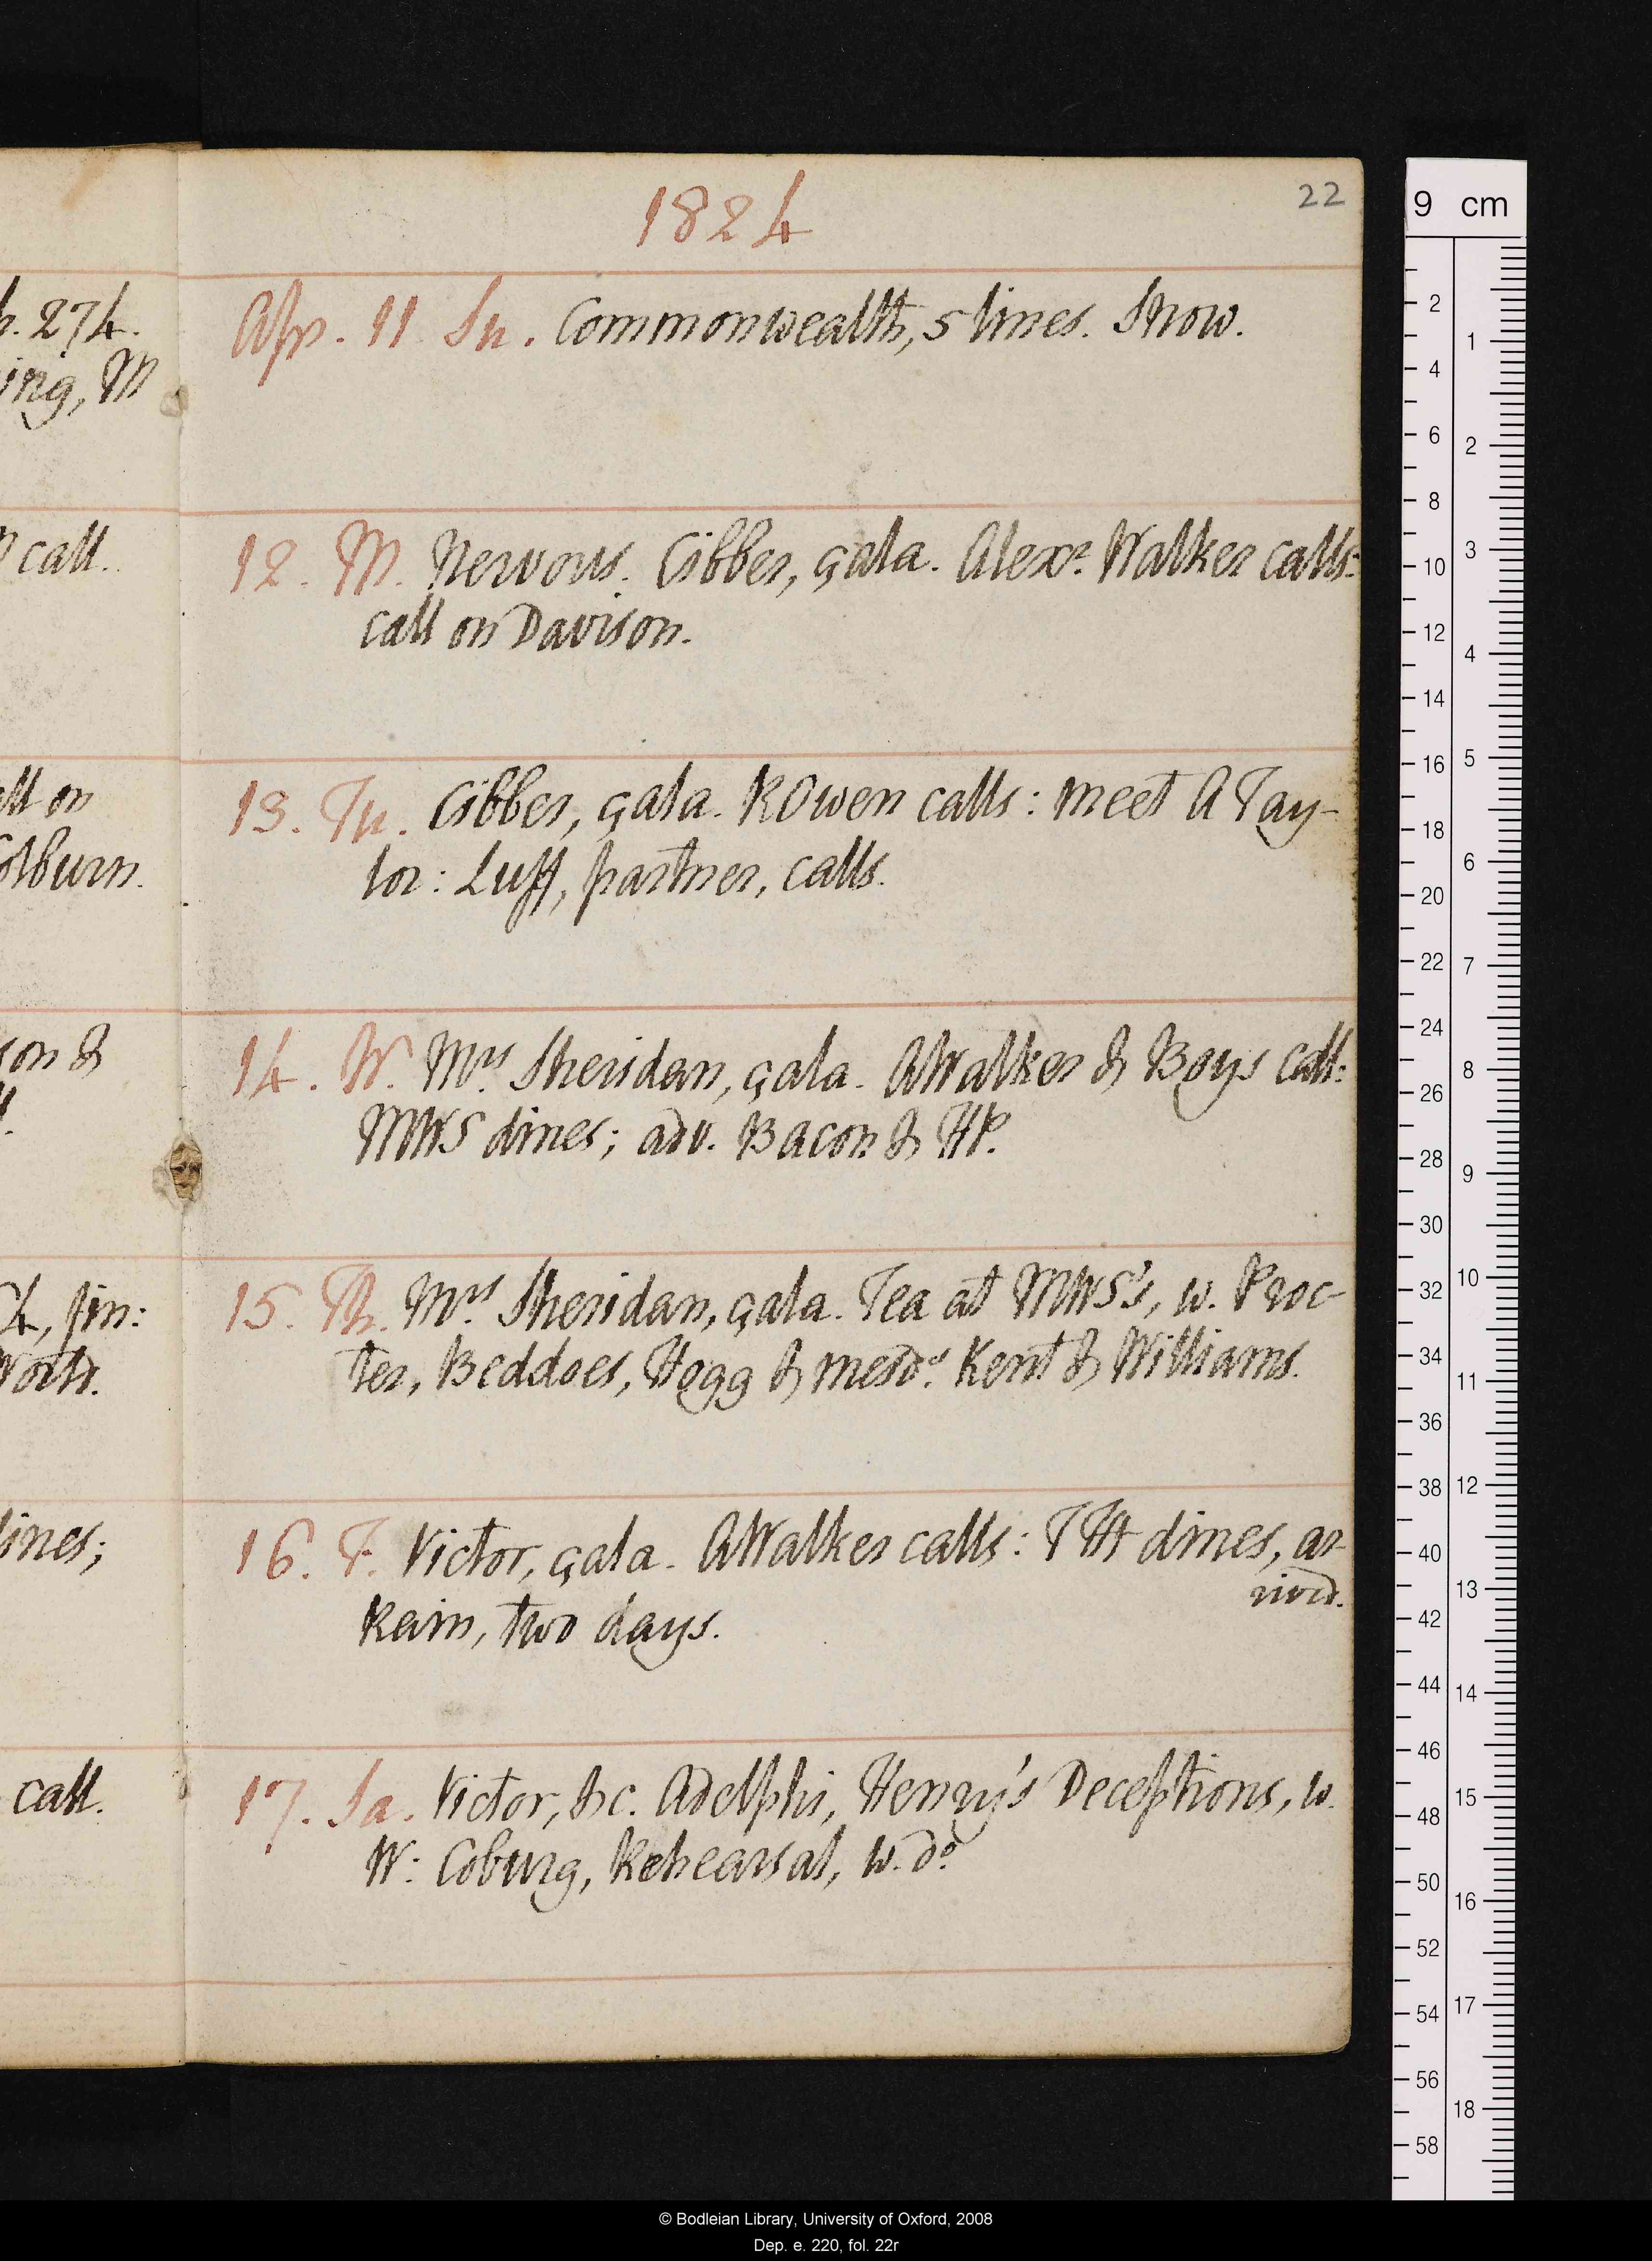 1824
22
Apr. 11 Su. Commonwealth, 5 lines. Snow.
12. M. Nervous. Cibber, çala. Alexr. Walker calls:
call on Davison.
13. Tu. Cibber, çala. R Owen calls: meet A Tay-
lor: Luff, partner, calls.
14. W. Mrs Sheridan, çala. A Walker & Boys call:
MWS dines; adv. Bacon & HP.
15. Th. Mrs Sheridan, çala. Tea at MWS's, w. Proc-
ter, Beddoes, Hogg & mesds. Kent & Williams.
16. F. Victor, çala. A Walker calls: TTH dines, ar-
rivd.
Rain, two days.
17. Sa. Victor, &c. Adelphi, Henry's Deceptions, w.
W: Coburg, Rehearsal, w. do.
274.
ing, M
call.
all on
Colburn.
son &
4, fin:
dines;
call.
9 cm
2
4
6
8
10
12
14
16
18
20
22
24
26
28
30
32
34
36
38
40
42
44
46
48
50
52
54
56
58
1
2
3
4
5
6
7
8
9
10
11
12
13
14
15
16
17
18
© Bodleian Library, University of Oxford, 2008
Dep. e. 220, fol. 22r